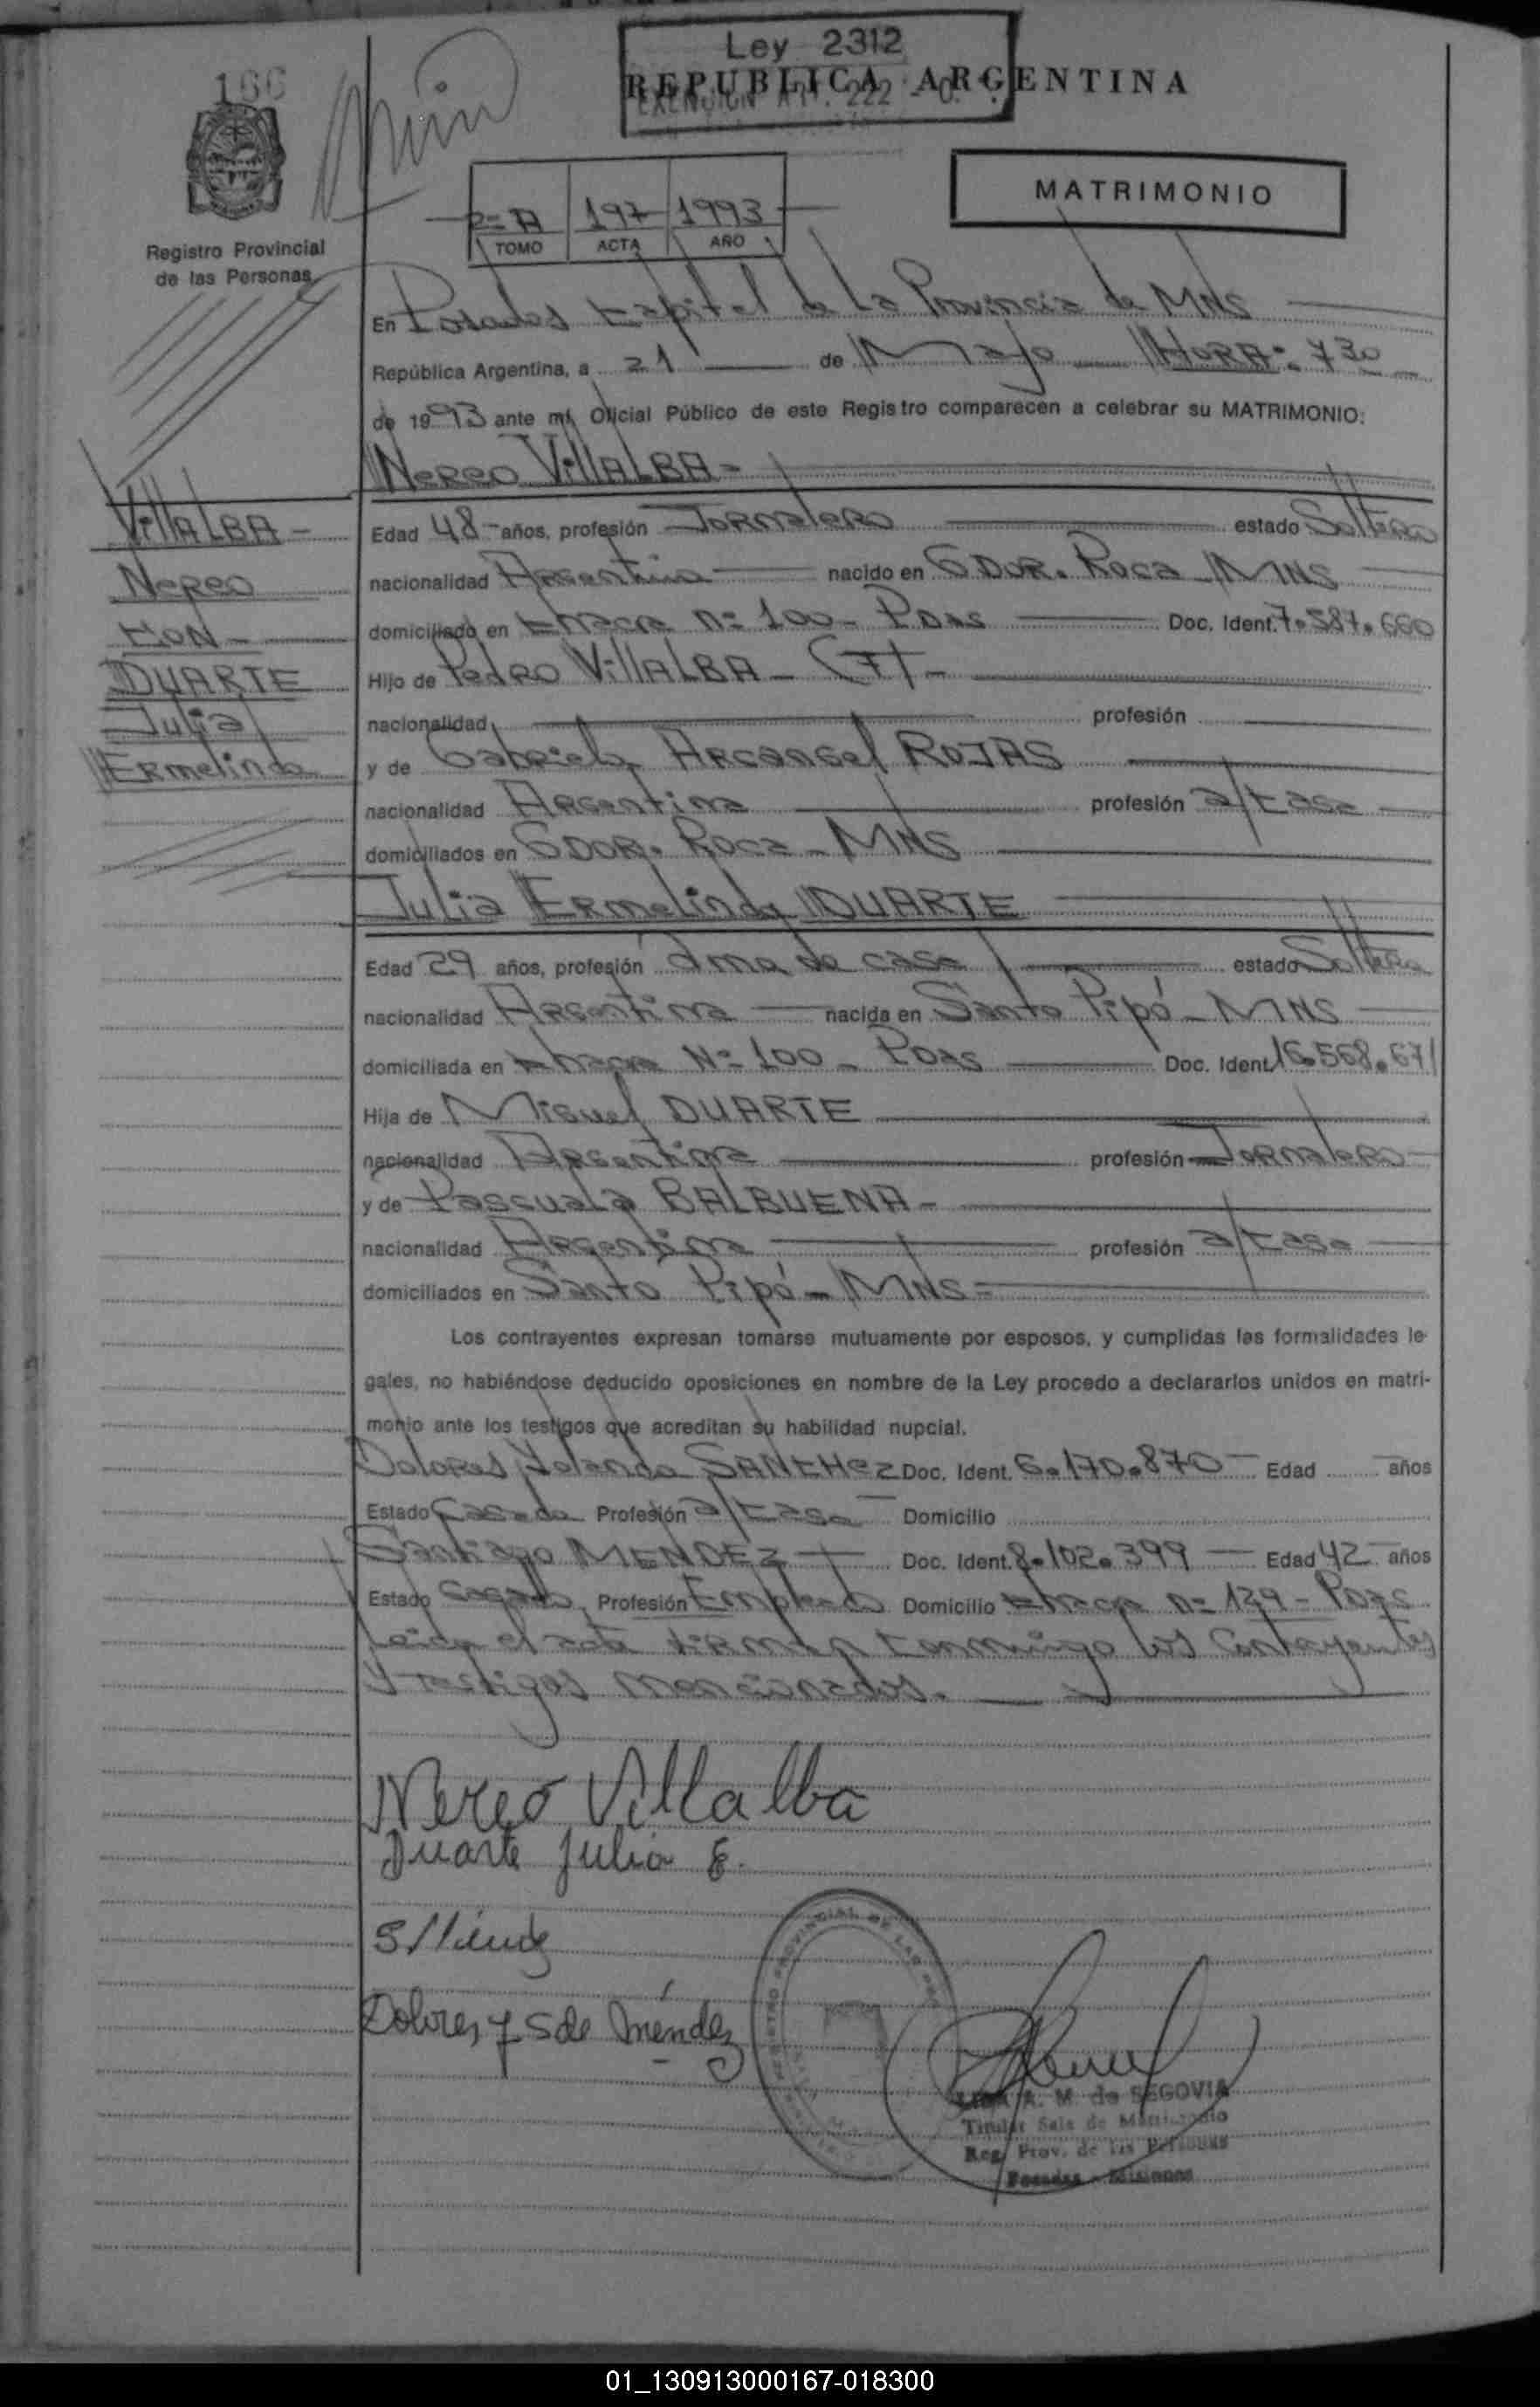 Ley 2312
REPUBLICA ARGENTINA
EXENCION ART. 222
166
MATRIMONIO
2º A 197 1993
TOMO ACTA AÑO
Registro Provincial
de las Personas
En Posadas Capital de La Provincia de MNS
República Argentina, a 21 de Mayo HORA: 730
de 1993 ante mí, Oficial Público de este Registro comparecen a celebrar su MATRIMONIO:
Nereo VillALBA-
VillALBA-
Nereo
CON-
DUARTE
Julia
Ermelinda
Edad 48- años, profesión Jornalero estado Soltero
nacionalidad Argentina nacido en GDOR. Roca MNS
domiciliado en Chacra nº 100- Pdas Doc. Ident. 7.587.660
Hijo de Pedro VillALBA- (F)-
nacionalidad profesión
y de Gabriela Arcangel ROJAS
nacionalidad Argentina profesión a/casa
domiciliados en GDOR. Roca - MNS
Julia Ermelinda DUARTE
Edad 29 años, profesión ama de casa estado Soltera
nacionalidad Argentina nacida en Santo Pipó - MNS
domiciliada en chacra Nº 100 - Pdas Doc. Ident. 16.568.671
Hija de Miguel DUARTE
nacionalidad Argentina profesión Jornalero
y de Pascuala BALBUENA-
nacionalidad Argentina profesión a/casa
domiciliados en Santo Pipó - MNS-
Los contrayentes expresan tomarse mutuamente por esposos, y cumplidas las formalidades le-
gales, no habiéndose deducido oposiciones en nombre de la Ley procedo a declararlos unidos en matri-
monio ante los testigos que acreditan su habilidad nupcial.
Dolores Yolanda SANCHez Doc. Ident. 6.170.870 Edad años
Estado Casada Profesión a/casa Domicilio
Santiago MENDEZ Doc. Ident. 8.102.399 Edad 42 años
Estado Casado, Profesión Empleado Domicilio chacra nº 139 - Pdas
Leida el acta firman conmigo los Contrayentes
y testigos mencionados.
Nereo Villalba
Duarte Julia E.
S Méndez
Dolores Y S de Méndez
A. M. de SEGOVIA
Titular Sala de Matrimonio
Reg. Prov. de las Personas
Posadas - Misiones
01_130913000167-018300